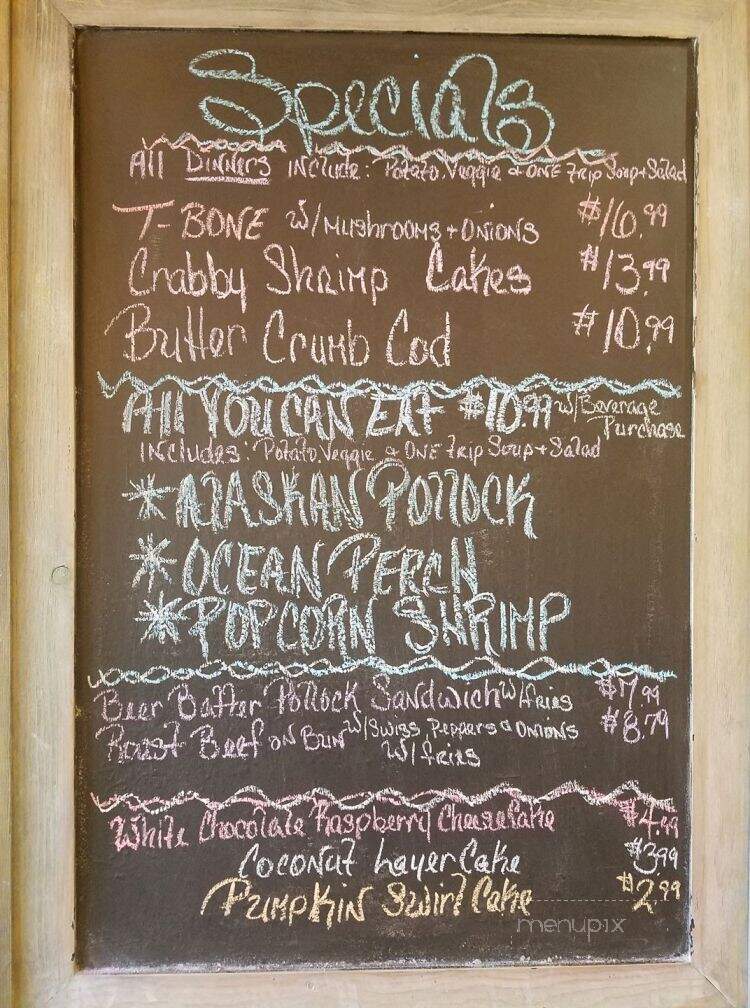 Specials
All Dinners Include: Potato, Veggie & ONE trip Soup + Salad
T-BONE w/ Mushrooms + Onions $16.99
Crabby Shrimp Cakes $13.99
Butter Crumb Cod $10.99
All YOU CAN EAT $10.99 w/ Beverage Purchase
Includes: Potato, Veggie & ONE trip Soup + Salad
*ALASKAN POLLOCK
*OCEAN PERCH
*POPCORN SHRIMP
Beer Batter Pollock Sandwich w/ fries $7.99
Roast Beef on Bun w/ Swiss, Peppers & Onions $8.79
w/ fries
White Chocolate Raspberry Cheesecake $4.99
Coconut Layer Cake $3.99
Pumpkin Swirl Cake $2.99
menupix